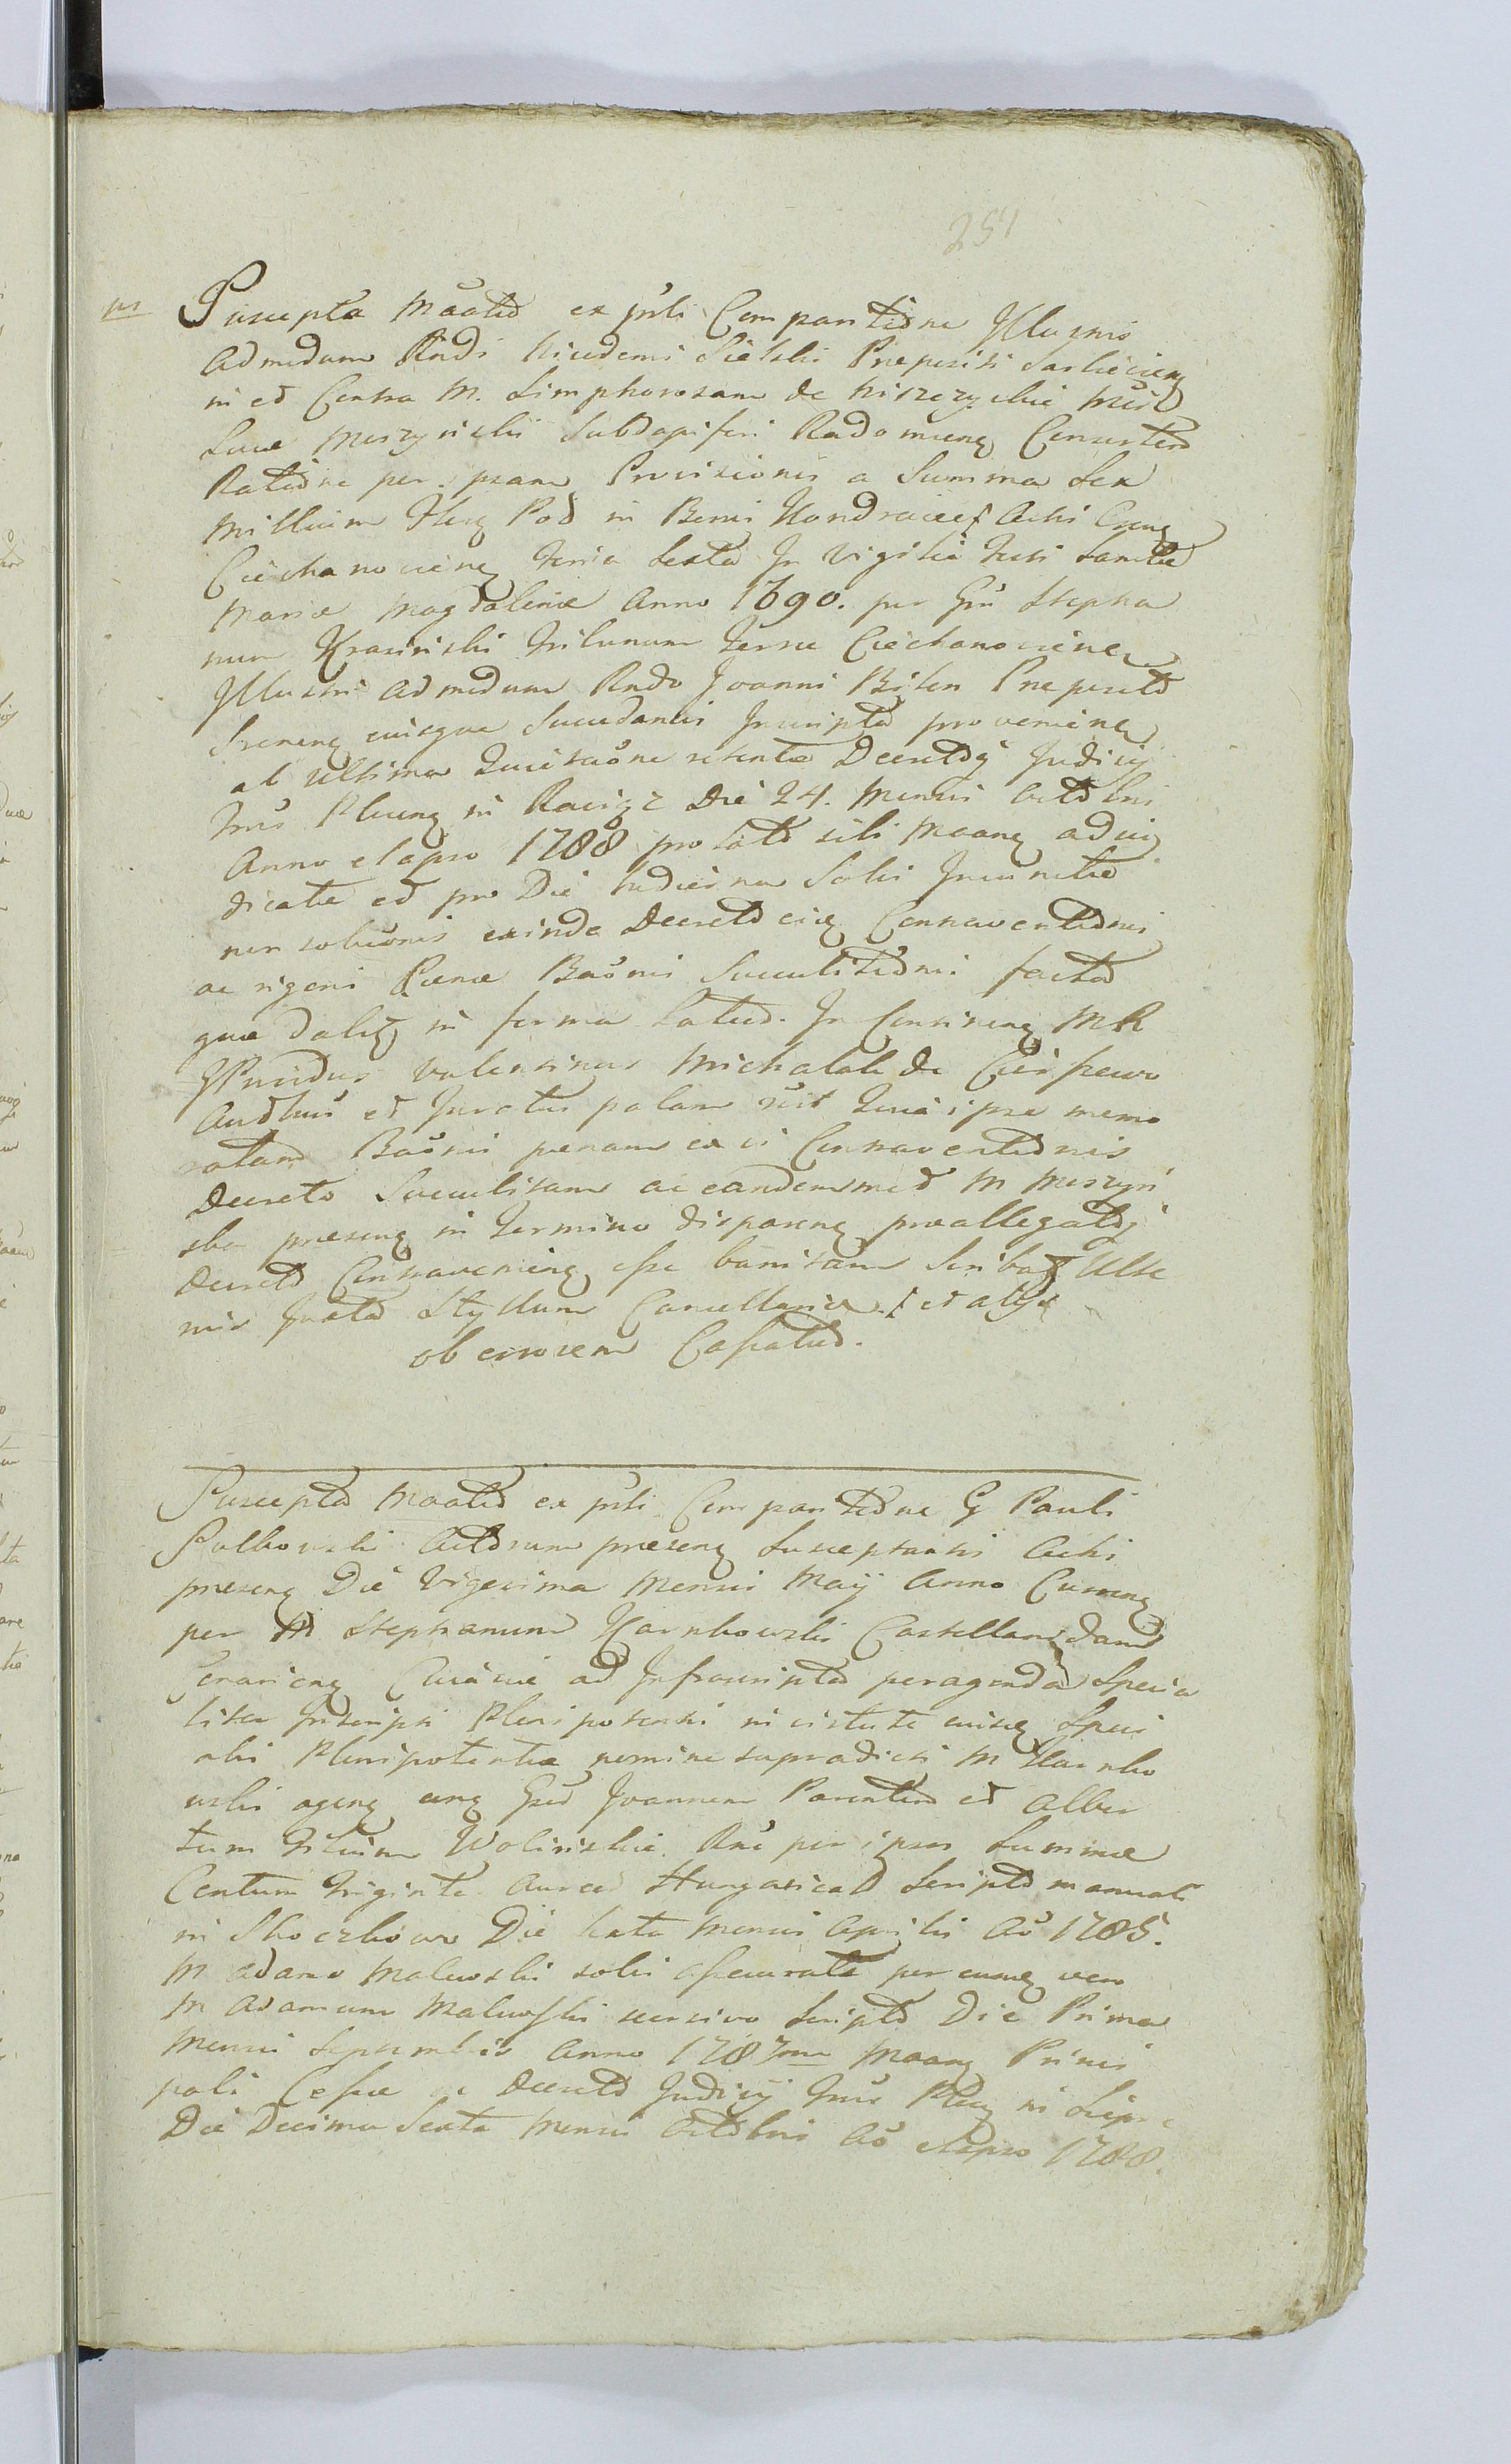 254
Suscepta Maatio ex psli Comparitione Illustris
admodum Rndi Nicodemi Sielski Prepositi Sarbievieng
in et Contra M. Simphorosam de Miszczychie
Luce Meszynski Subdapiferi Radomieng Consortem
Ratione per psam Provisionis a Summa Sex
Millium Flng Pol in Bonis Kondrajec Actis
Ciechanovieng Feria Sexta In Vigilia Festi Sanctae
Mariae Magdalenae Anno 1690. per Gsu Stepha
num Krasinski Tribunum Terrae Ciechanovieng
Illustri admodum Rndo Joanni Bilen Preposito
Sreneng eiusque Succedaneis Inscripta provenieng
ab ultima Quietaone retenta Decretoq Judicij
Trus Plceng in Raciąż Die 24. Mensis Octobris
Anno elapso 1788 prolato sibi Maang adiu
dicatae et pro Die hodierna Solvi Iniunctae
non solutionis exinde Decreto eiq Contraventionis
ac rigori Paenae Baonis Succubitionis facta
que dalig in forma Latius. In Contineng MR
Pvidus Valentinus Michalak de
Authus et Juratus palam rēct Quia ipse memo
ratam Baonis penam ex vi Contraventionis
Decreto Succubitam ac eandemmet M Meszyn
ska preseng in Termino dispareng preallegato
Decreto Contravenieng esse banitam Scribat Ulte
rius Juxta Styllum Cancellariae. et alijs
ob errorem Cassatus.
Suscepta Maatio ex psli Comparitione G Pauli
Sulkowski Actorum preseng Susceptantis Actis
preseng Die Vigesima Mensis Maij Anno Curreng
per M Stephanum Karnkowski Castellanidam
ad Infrascripta peragenda Specia
liter Inscripti Plenipotentis in virtute eiusq Speci
alis Plenipotentiae nomine supradicti M Karnko
wski ageng cing Gsos Joannem Parentem et Alber
tum Filium Wolinskie. Rne per ipsos Summae
Centum Triginta Aureos Hungaricales Scripto manuali
in Skoczkowo Die Sexta Mensis Aprilis Ao 1785.
M Adamo Malewski solvi assecuratae per eumq vero
M Adamum Malewski recursivo Scripto Die Prima
Mensis Septembris Anno 1787mo Maang Princi
pali Cessae ac Decreto Judicij Trus Plceng in
Die Decima Sexta Mensis Octobris Ao elapso 1788.